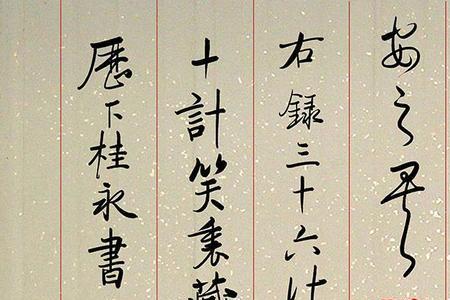 安之
右録三十六计
十計笑裏藏
歷下桂永書